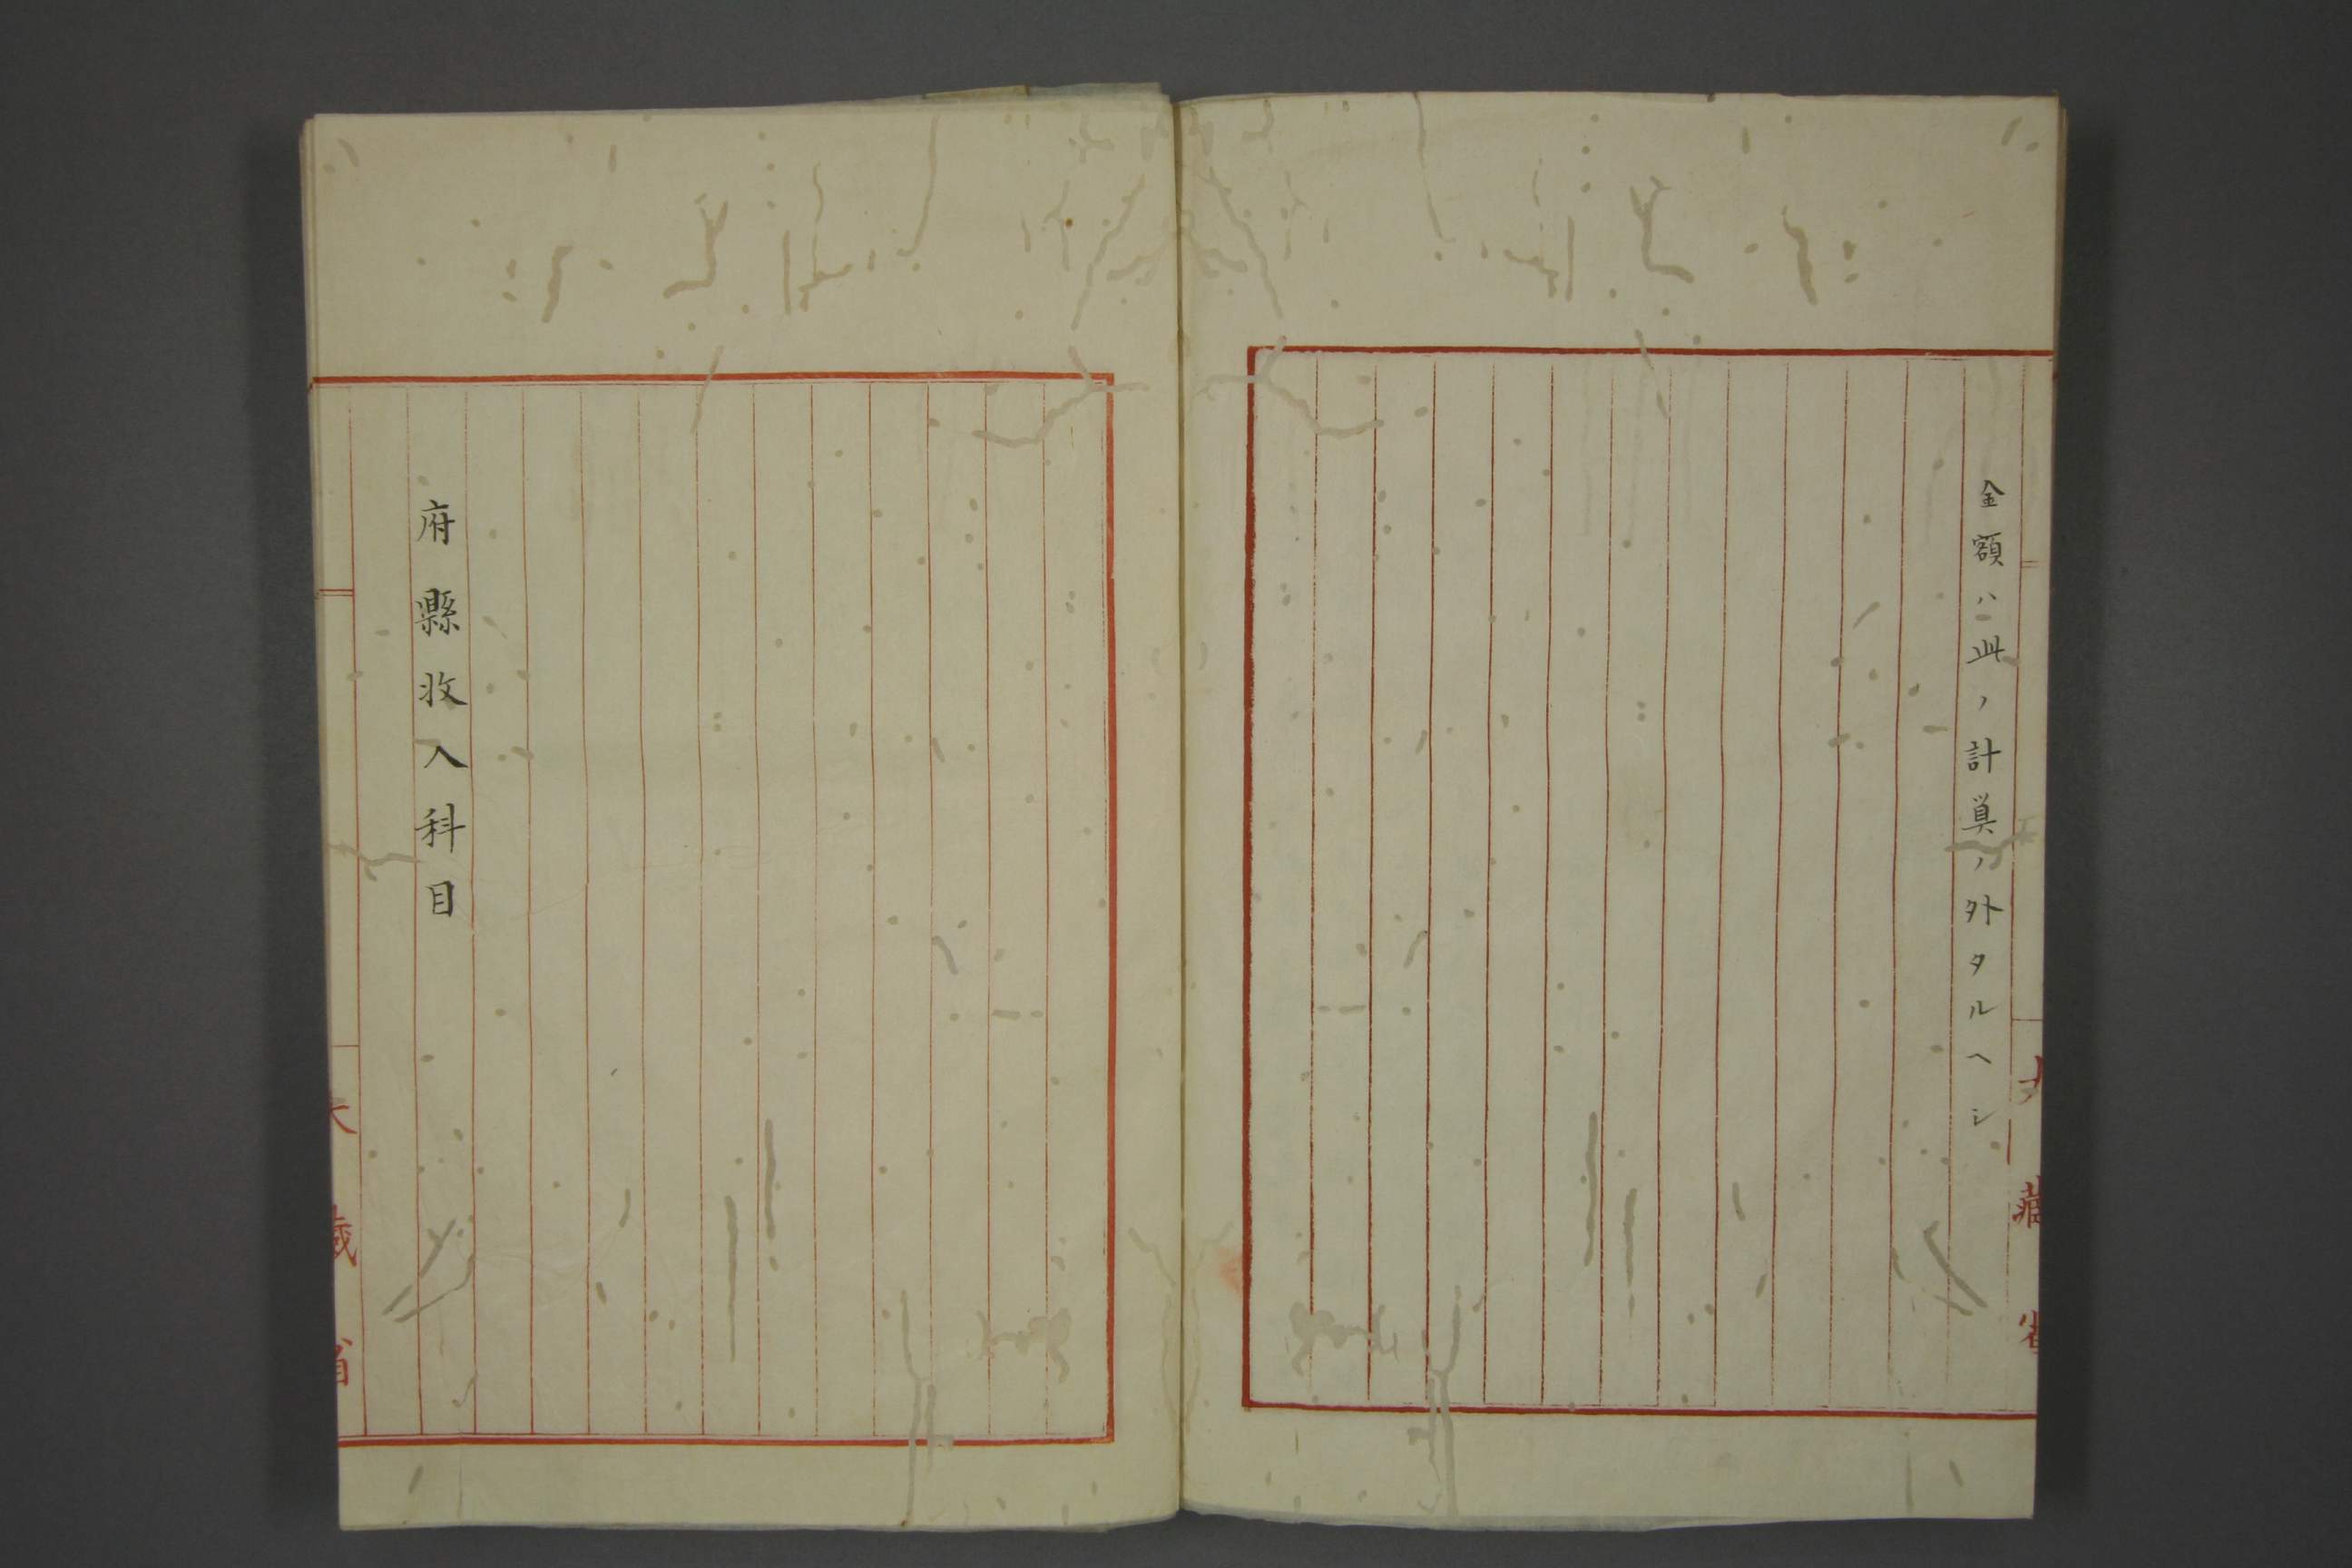 金額ハ此ノ計算ノ外タルヘシ
大藏省
府縣收入科目
大藏省